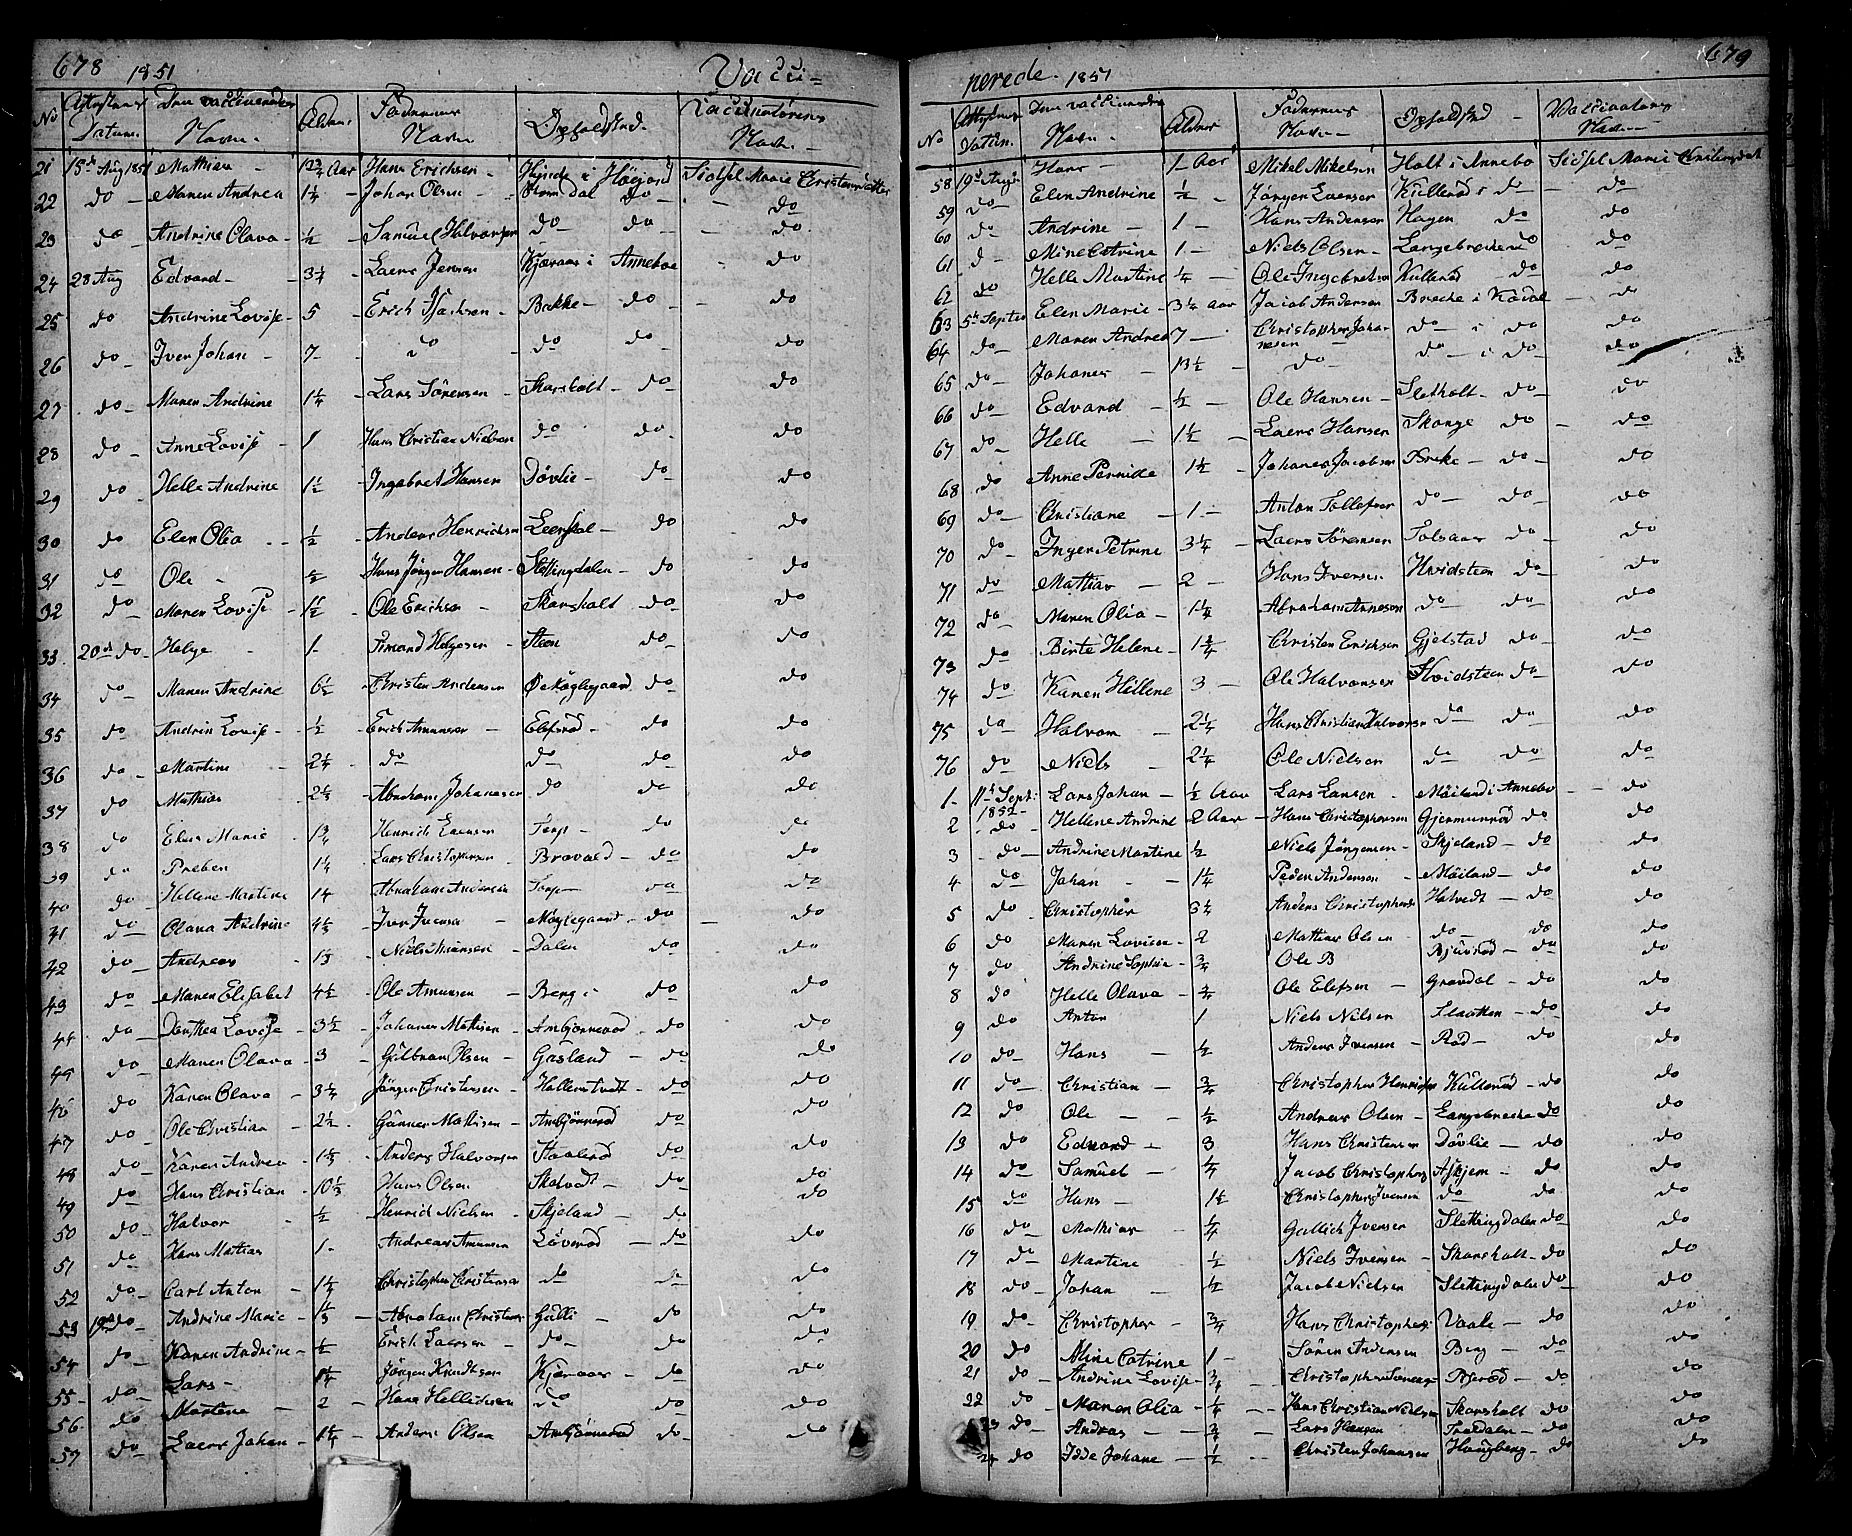 678 1851 Vacci-
No Attestens Datum. Den vaccineredes Navn. Alder. Faderens Navn Opholdsted. Vaccinatørens Navn.
21 15de Aug 1851 Mathias Aar Hans Erichsen i Høyjord Maria
22 do Maren Andrea 1¼ Johan Olsen do do
23 do Andrine Olava ½ Samuel Halvorsen do do do
24 28 Aug Edvard 3¼ Laers Jensen Kjæraas i Anneboe do
25 do Andrine Lovise 5 Erich Isachsen Bakke do do
26 do Iver Johan 7 do do do do
27 do Maren Andrine 1¼ Lars Sørensen Skarsholt do do
28 do Anne Lovise 1 Hans Christian Nielsen do do do
29 do Helle Andrine 1½ Ingebret Hansen Døvlie do do
30 do Elen Olia ½ Anders Henrichsen do do
31 do Ole ½ Hans Jørgen Hansen Slettingdalen do do
32 do Maren Lovise 1½ Ole Erichsen Skarsholt do do
33 20de do Helge 1 Simond Helgesen Steen do do
34 do Maren Andrine 6½ Christen Andersen do do
35 do Andrin Lovise ½ Erich Amunsen do do
36 do Martine 2¼ do do do do
37 do Mathias Abraham Johansen do do do
38 do Elen Marie Henrich Laersen Torp do do
39 do Preben 1¼ Lars Christophersen Bravald do do
40 do Hellene Martine Abraham Andersen Torp do do
41 do Olava Andrine Iver Iversen Møglegaard do do
42 do Andreas Niels Dalen do do
43 do Maren Elisabet 4½ Ole Amunsen Berg i do do
44 do Dorthea Lovise 3½ Johanes Mathisen Ambjørnerød do do
45 do Maren Olava 3 Gulbran Olsen Gasland do do
46 do Karen Olava Jørgen Christensen do do
47 do Ole Christian 2½ Gunner Mathisen Ambjørnerød do do
48 do Karen Andrea Anders Halvorsen do do
49 do Hans Christian Hans Olsen do do
50 do Halvor ½ Henrich Nielsen Skjeland do do
51 do Hans Mathias 1 Andreas Amunsen Løverød do do
52 do Carl Anton 1¼ Christopher Christensen do do do
53 do Andrine Marie Abraham Christens Gulli do do
54 do Karen Andrine ½ Erich Laersen do do do
55 do Lars 1¼ Jørgen Knudtsen Kjæraas do do
56 do Martene 2 Hans Hellichsen do do do
57 do Laers Johan Anders Olsen Ambjørnerød do do
nerede 1851 679
No Attestens Datum. Den vaccineredes Navn Alder Faderens Navn Opholdsted Vaccinatørens Navn
58 19de Hans 1 Aar Mikel Mikelsen Holt i Annebo Marie
59 do Elen Andrine ½ Jørgen Laersen Kullerød i do do
60 do Andrine 1 Hans Andersen Hagen do do
61 d Mine Catrine 1 Niels Olsen Langebrecke do do
62 do Helle Martine ¼ Ole Ingebretsen Kullerød do do
63 5te Septer Elen Marie 3¼ Aar Jacob Andersen Brecke i do
64 do Maren Andrea 7 Christopher Johannesen do i do do
65 do Johanes do do i do do
66 do Edvard ½ Ole Hansen Sletholt do do
67 do Helle 1½ Laers Hansen Skorge do do
68 do Anne Pernille 1½ Johanes Jacobsen Breke do do
69 do Christiane 1 Anton Tollefsen do do do
70 do Inger Petrine 3¼ Laers Sørensen Solsaas do do
71 do Mathias 2 Hans Iversen Hvidsteen do do
72 do Maren Olia 1¼ Abraham do do do
73 do Birte Helene Christen Erichsen Gjelstad do do
74 do Karen Hellene 3 Ole Halvorsen Hvidsteen do do
75 do Halvor 2¼ Hans Christian Halvorsen do do do
76 do Niels 2¼ Ole Nielsen do do do
1 11te Sept: 1852 Lars Johan ½ Aar Lars Larsen Møiland i Annebo do
2 do Hellene Andrine 2 Aar Hans Christophersen Gjermunrød do do
3 do Andrine Martine ½ Niels Jørgensen Skjeland do do
4 do Johan 1¼ Peder Andersen Møiland do do
5 do Christopher 3¼ Anders Christophers Holvedt do do
6 do Maren Lovise 2 Mathias Olsen do do do
7 do Andrine Sophie ¾ Ole B Bjuerød do do
8 do Helle Olava ¾ Ole Elefsen Gravdal do do
9 do Anton 1 Niels Nilsen do do
10 do Hans ½ Anders Ivensen Rød do do
11 do Christian ¾ Christopher Henrichsen Kullerød do do
12 do Ole ½ Andreas Olsen Langebrecke do do
13 do Edvard 3 Hans Christensen Døvlie do do
14 do Samuel ¼ Jacob Christophers Askjem do do
15 do Hans Christopher Ivensen do do do
16 do Mathias ¼ Gullich Ivensen Slettingdalen do do
17 do Martine ½ Niels Ivensen Skarsholt do do
18 do Johan ½ Jacob Nielsen Slettingdalen do do
19 do Christopher ¾ Hans Christophers Vaale do do
20 do Mine Catrine 1 Søren Andersen Berg do do
21 do Andrine Lovise ¾ Christopher do do
22 do Maren Olia ¼ Hans Christian Nielsen Skarsholt do do
23 do Andreas ¾ Lars Hansen do do
24 do Idde Johane ½ Christen Johansen Haugberg do do